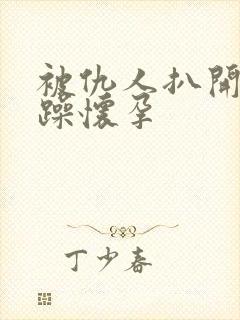 被仇人扒開
躁懷孕
丁少春